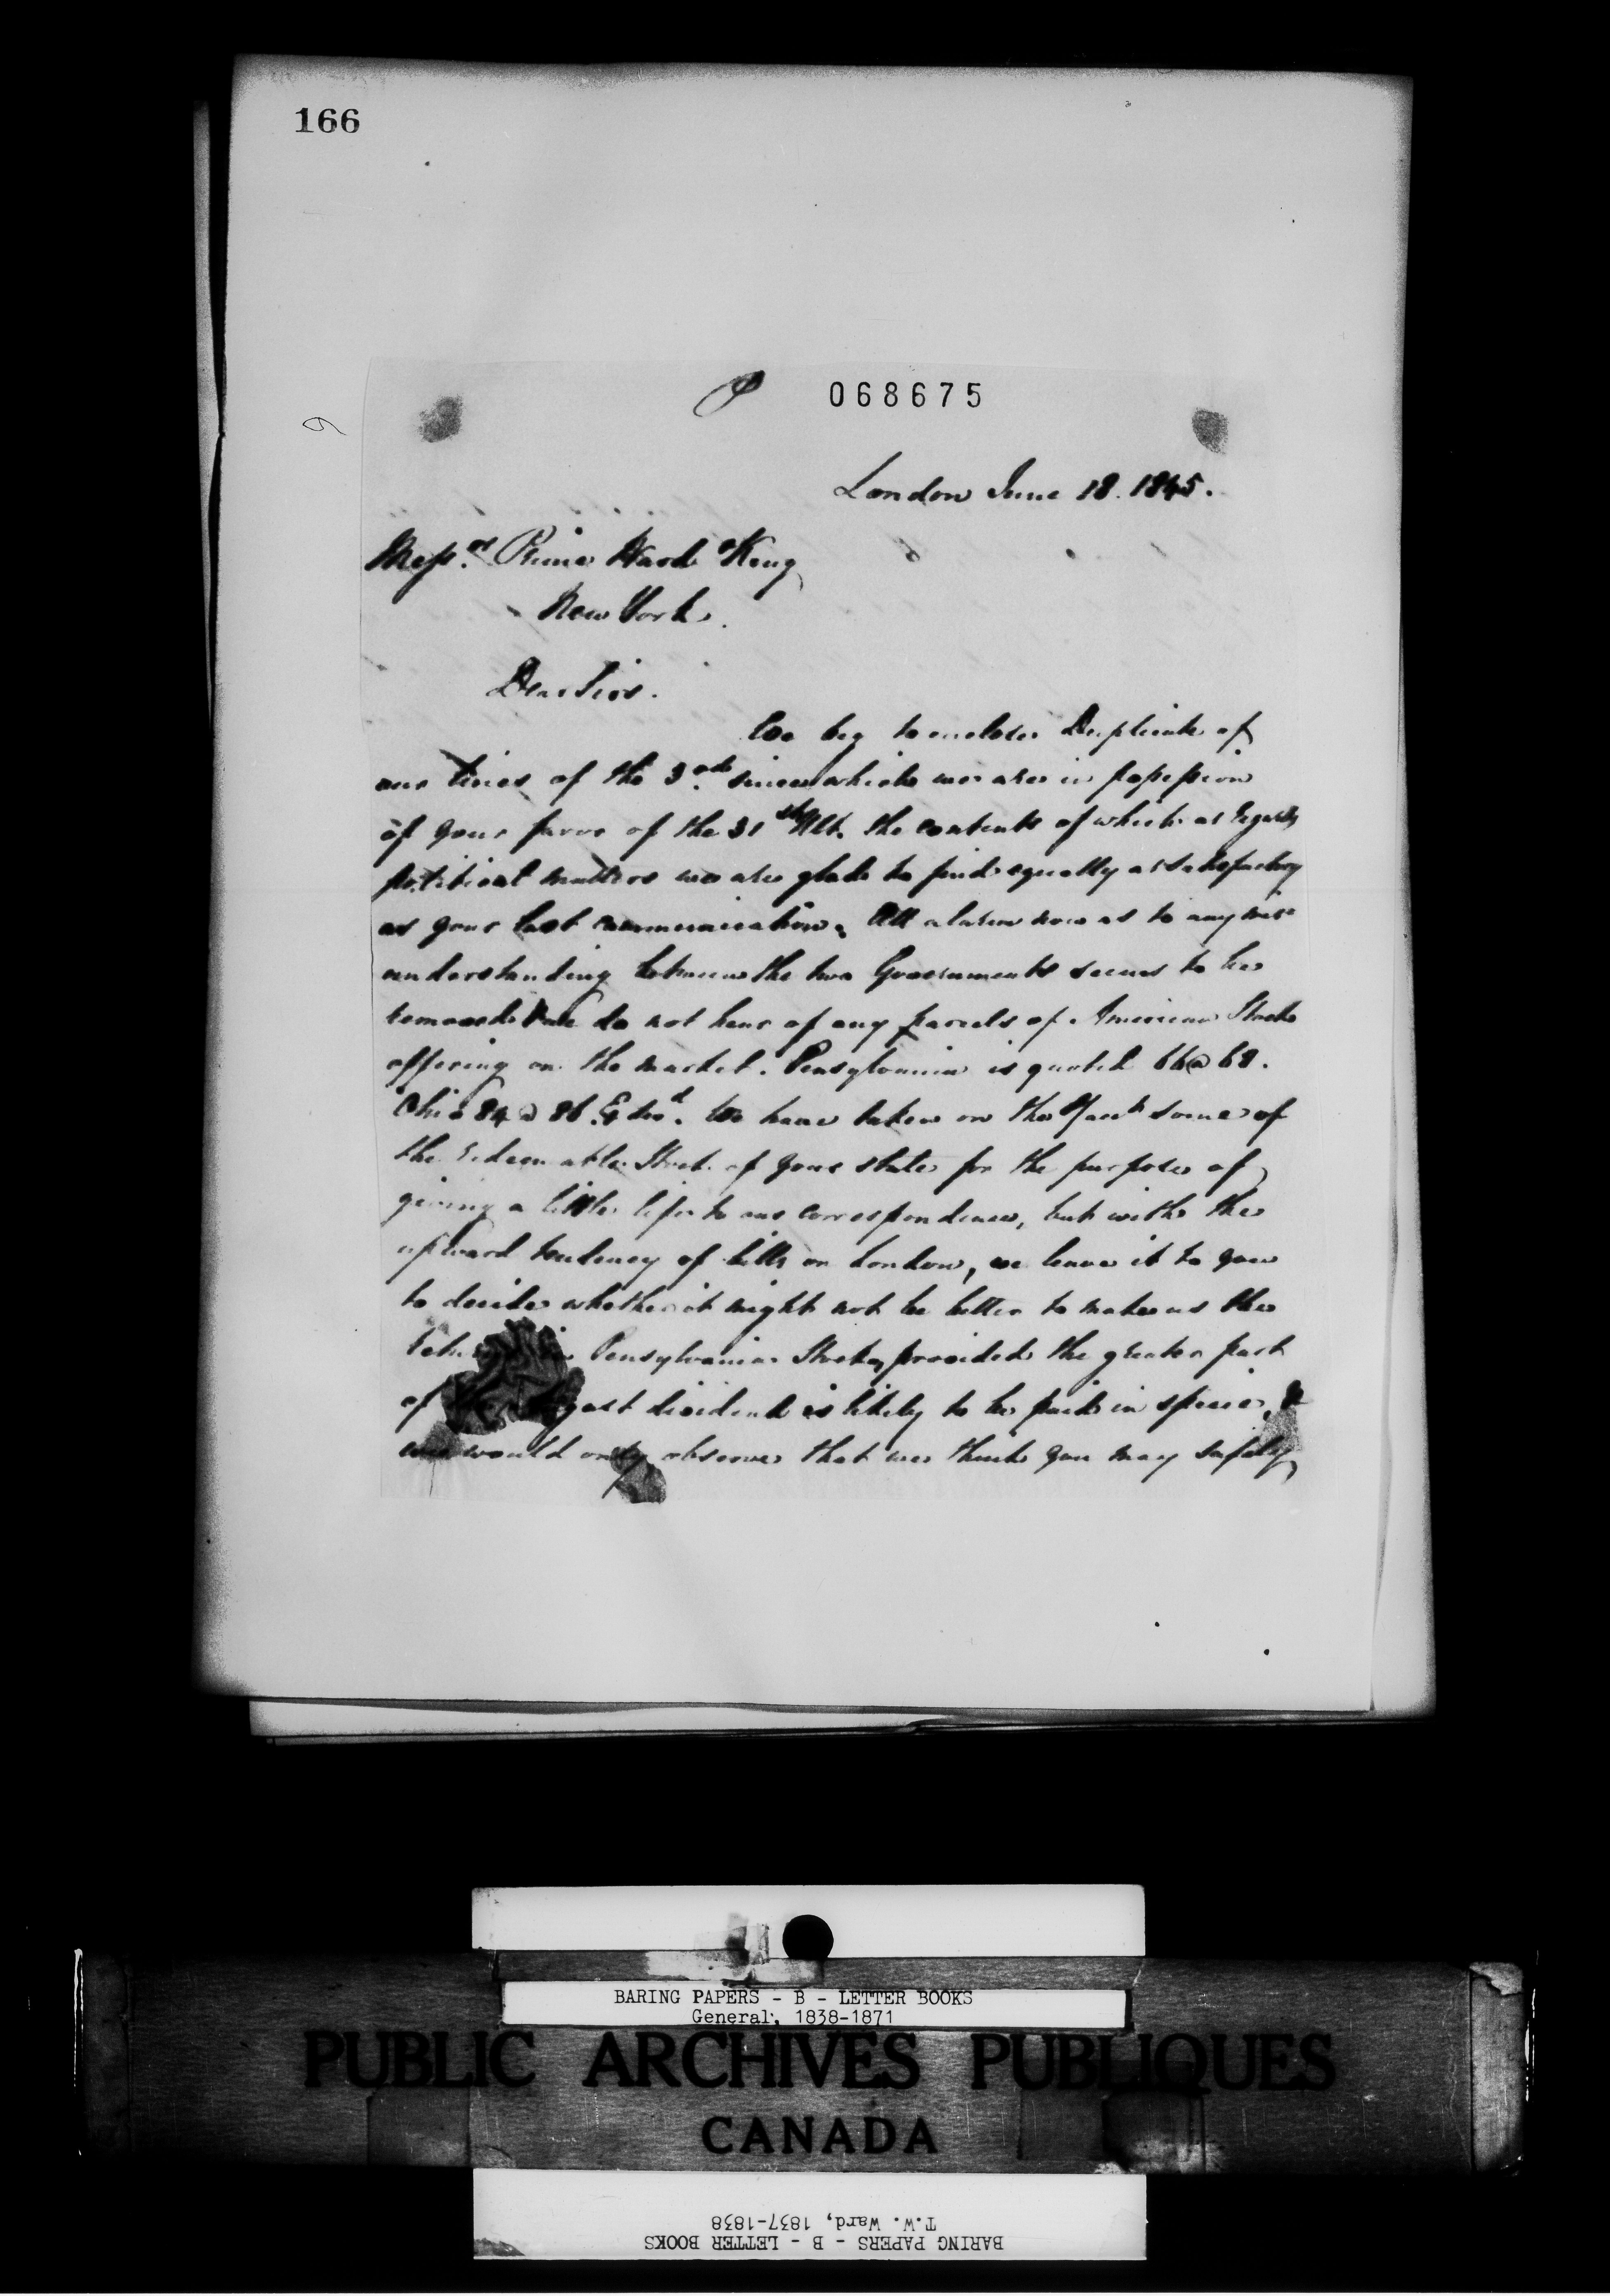 166
068675
London June 18. 1845.
Mess.rs Prime Ward & King
New York.
Dear Sirs.
We beg to enclose Duplicate of
our lines of the 3rd since which we are in possession
of your favor of the 31st Ult. the contents of which as regards
political matters we are glad to find equally as satisfactory
as your last communication. All alarm now as to any mis
understanding between the two Governments seems to be
removed. We do not hear of any parcels of American Stocks
offering on the market. Pensylvania is quoted 66 @ 68.
Ohio 84 @ 86. We have taken on the some of
the redeemable Stock of your state for the purpose of
giving a little life to our correspondence, but with the
upward tendency of bills on London, we leave it to you
to decide whether it might not be better to make us the
in Pensylvania Stock, provided the greater part
of dividend is likely to be paid in specie, &
we would only observe that we think you may safely
BARING PAPERS - B - LETTER BOOKS
General, 1838-1871
PUBLIC ARCHIVES PUBLIQUES
CANADA
BARING PAPERS - B - LETTER BOOKS
T.W. Ward, 1837-1838